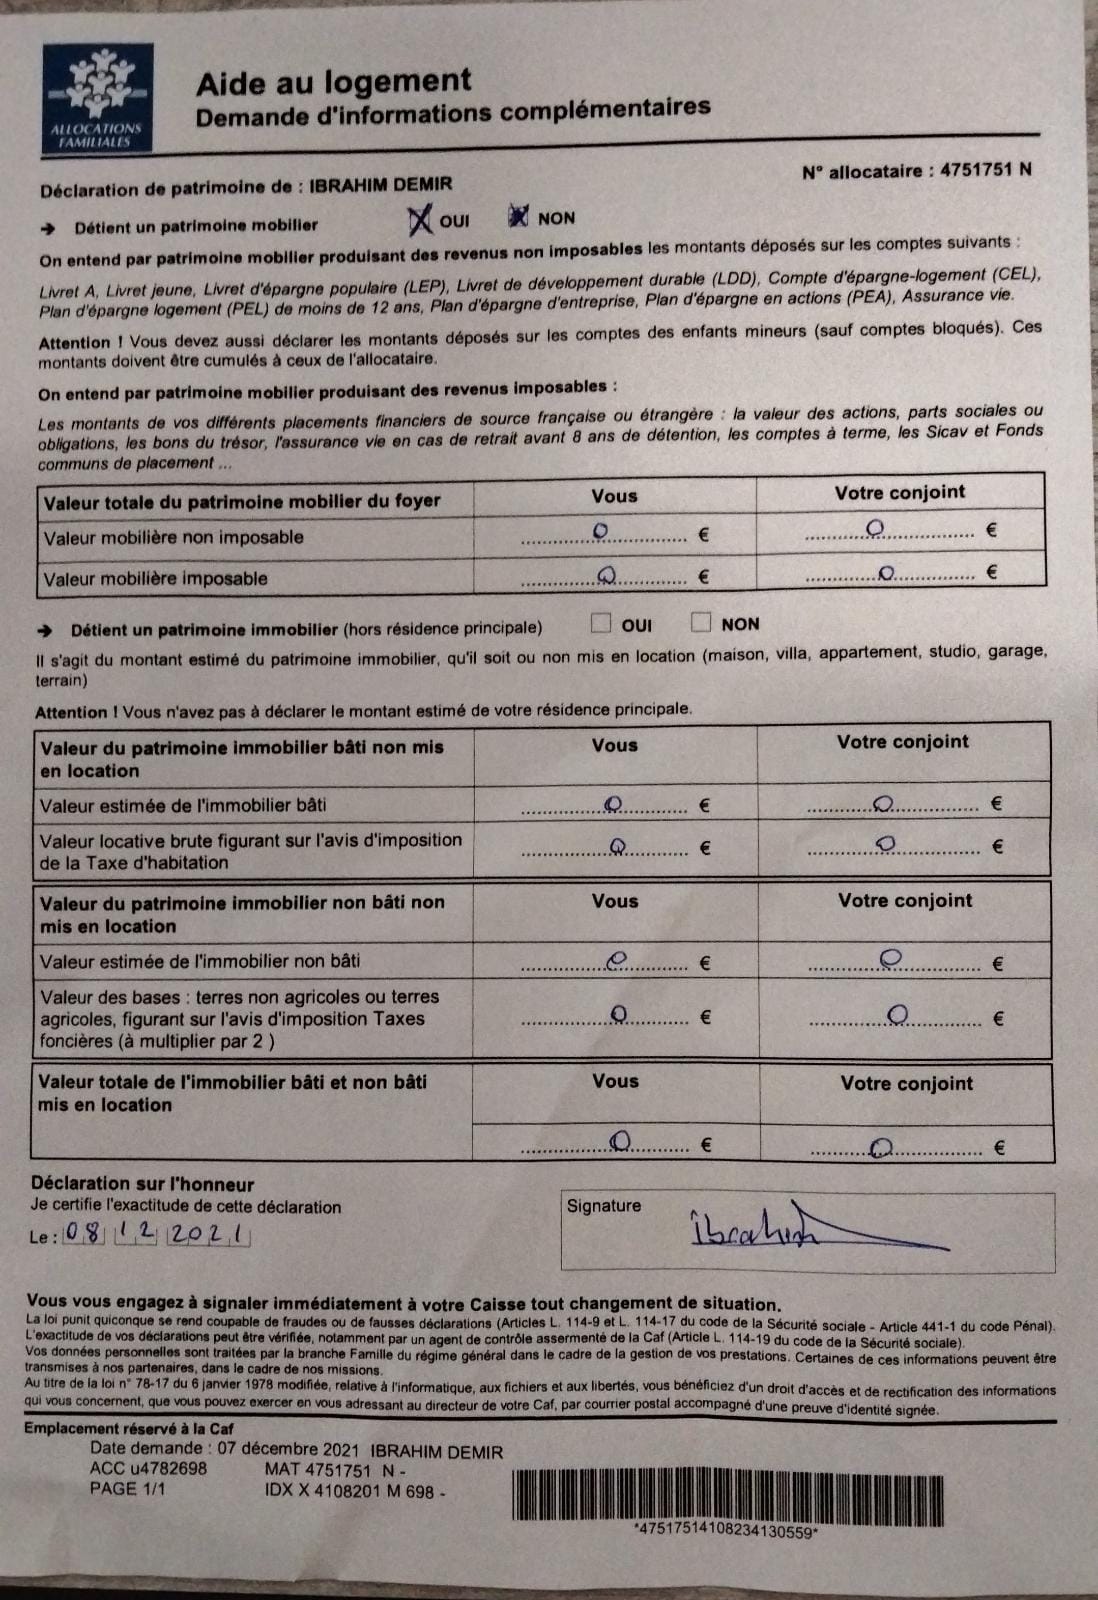 ALLOCATIONS
FAMILIALES
Aide au logement
Demande d'informations complémentaires
N° allocataire : 4751751 N
Déclaration de patrimoine de : IBRAHIM DEMIR
➔ Détient un patrimoine mobilier X OUI X NON
On entend par patrimoine mobilier produisant des revenus non imposables les montants déposés sur les comptes suivants :
Livret A, Livret jeune, Livret d'épargne populaire (LEP), Livret de développement durable (LDD), Compte d'épargne-logement (CEL),
Plan d'épargne logement (PEL) de moins de 12 ans, Plan d'épargne d'entreprise, Plan d'épargne en actions (PEA), Assurance vie.
Attention ! Vous devez aussi déclarer les montants déposés sur les comptes des enfants mineurs (sauf comptes bloqués). Ces
montants doivent être cumulés à ceux de l'allocataire.
On entend par patrimoine mobilier produisant des revenus imposables :
Les montants de vos différents placements financiers de source française ou étrangère : la valeur des actions, parts sociales ou
obligations, les bons du trésor, l'assurance vie en cas de retrait avant 8 ans de détention, les comptes à terme, les Sicav et Fonds
communs de placement ...
Valeur totale du patrimoine mobilier du foyer Vous Votre conjoint
Valeur mobilière non imposable 0 € 0 €
Valeur mobilière imposable 0 € 0 €
➔ Détient un patrimoine immobilier (hors résidence principale) ☐ OUI ☐ NON
Il s'agit du montant estimé du patrimoine immobilier, qu'il soit ou non mis en location (maison, villa, appartement, studio, garage,
terrain)
Attention ! Vous n'avez pas à déclarer le montant estimé de votre résidence principale.
Valeur du patrimoine immobilier bâti non mis Vous Votre conjoint
en location
Valeur estimée de l'immobilier bâti 0 € 0 €
Valeur locative brute figurant sur l'avis d'imposition 0 € 0 €
de la Taxe d'habitation
Valeur du patrimoine immobilier non bâti non Vous Votre conjoint
mis en location
Valeur estimée de l'immobilier non bâti 0 € 0 €
Valeur des bases : terres non agricoles ou terres
agricoles, figurant sur l'avis d'imposition Taxes 0 € 0 €
foncières (à multiplier par 2 )
Valeur totale de l'immobilier bâti et non bâti Vous Votre conjoint
mis en location
0 € 0 €
Déclaration sur l'honneur
Je certifie l'exactitude de cette déclaration
Le : 08 12 2021
Signature
ibrahim
Vous vous engagez à signaler immédiatement à votre Caisse tout changement de situation.
La loi punit quiconque se rend coupable de fraudes ou de fausses déclarations (Articles L. 114-9 et L. 114-17 du code de la Sécurité sociale - Article 441-1 du code Pénal).
L'exactitude de vos déclarations peut être vérifiée, notamment par un agent de contrôle assermenté de la Caf (Article L. 114-19 du code de la Sécurité sociale).
Vos données personnelles sont traitées par la branche Famille du régime général dans le cadre de la gestion de vos prestations. Certaines de ces informations peuvent être
transmises à nos partenaires, dans le cadre de nos missions.
Au titre de la loi n° 78-17 du 6 janvier 1978 modifiée, relative à l'informatique, aux fichiers et aux libertés, vous bénéficiez d'un droit d'accès et de rectification des informations
qui vous concernent, que vous pouvez exercer en vous adressant au directeur de votre Caf, par courrier postal accompagné d'une preuve d'identité signée.
Emplacement réservé à la Caf
Date demande : 07 décembre 2021 IBRAHIM DEMIR
ACC u4782698 MAT 4751751 N -
PAGE 1/1 IDX X 4108201 M 698 -
*47517514108234130559*